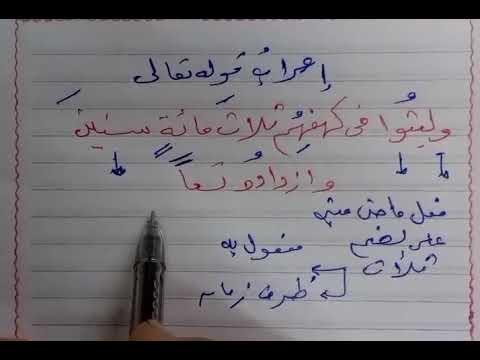 إعرابُ قوله تعالى
ولبثُوا في كهفهِم ثلاثَ مائةٍ سنينَ
وازدادوا تسعاً
فعل ماضٍ مبني
على الضم مفعول به
ثلاث
ظرف زمان